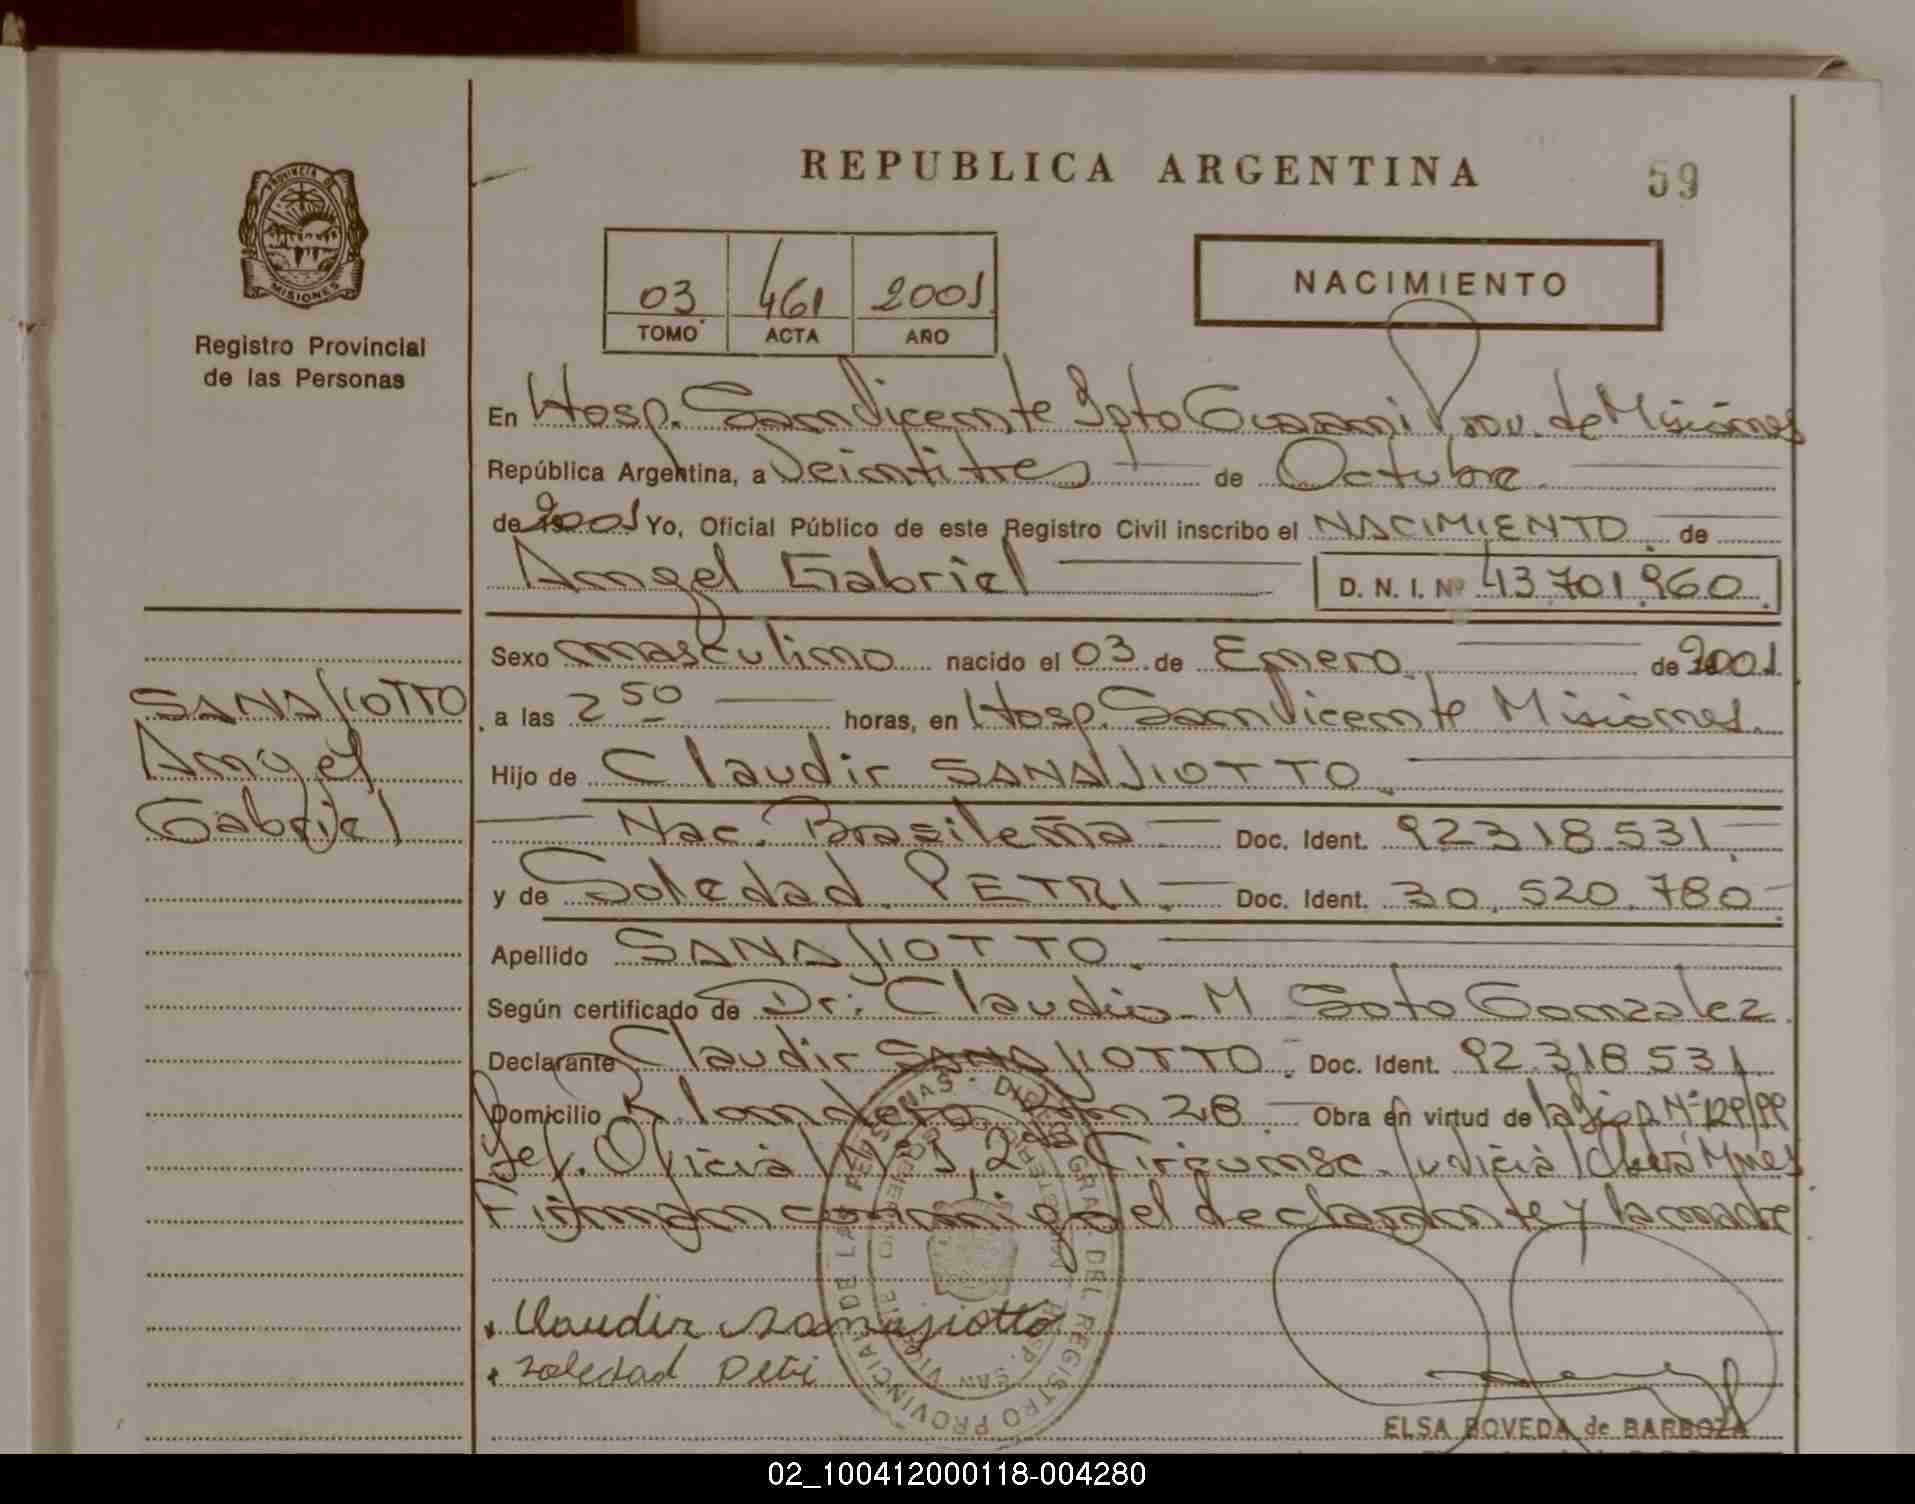 REPUBLICA ARGENTINA
59
PROVINCIA D
MISIONES
Registro Provincial
de las Personas
03 461 2001
TOMO ACTA AÑO
NACIMIENTO
En Hosp. San Vicente Dpto Guarani Prov. de Misiones
República Argentina, a Veintitres de Octubre
de 2001 Yo, Oficial Público de este Registro Civil inscribo el NACIMIENTO de
Angel Gabriel D. N. I. Nº 43.701.960
Sexo masculino nacido el 03 de Enero de 2001
SANAJIOTTO
Angel
Gabriel
a las 2 50 horas, en Hosp. San Vicente Misiones.
Hijo de Claudir SANAJIOTTO
Nac. Brasileña Doc. Ident. 92318531
y de Soledad PETRI Doc. Ident. 30.520.780
Apellido SANAJIOTTO
Según certificado de Dr. Claudio M Soto Gonzalez
Declarante Claudir SANAJIOTTO Doc. Ident. 92.318.531
Domicilio Km 28 Obra en virtud de
Circunsc. Judicial
Firman conmigo el declarante y la madre
DIR GRAL. DEL REGISTRO PROVINCIAL DE LAS PERSONAS
HOSP. SAN VICENTE
Claudir Sanajiotto
Soledad Petri
ELSA BOVEDA de BARBOZA
02_100412000118-004280